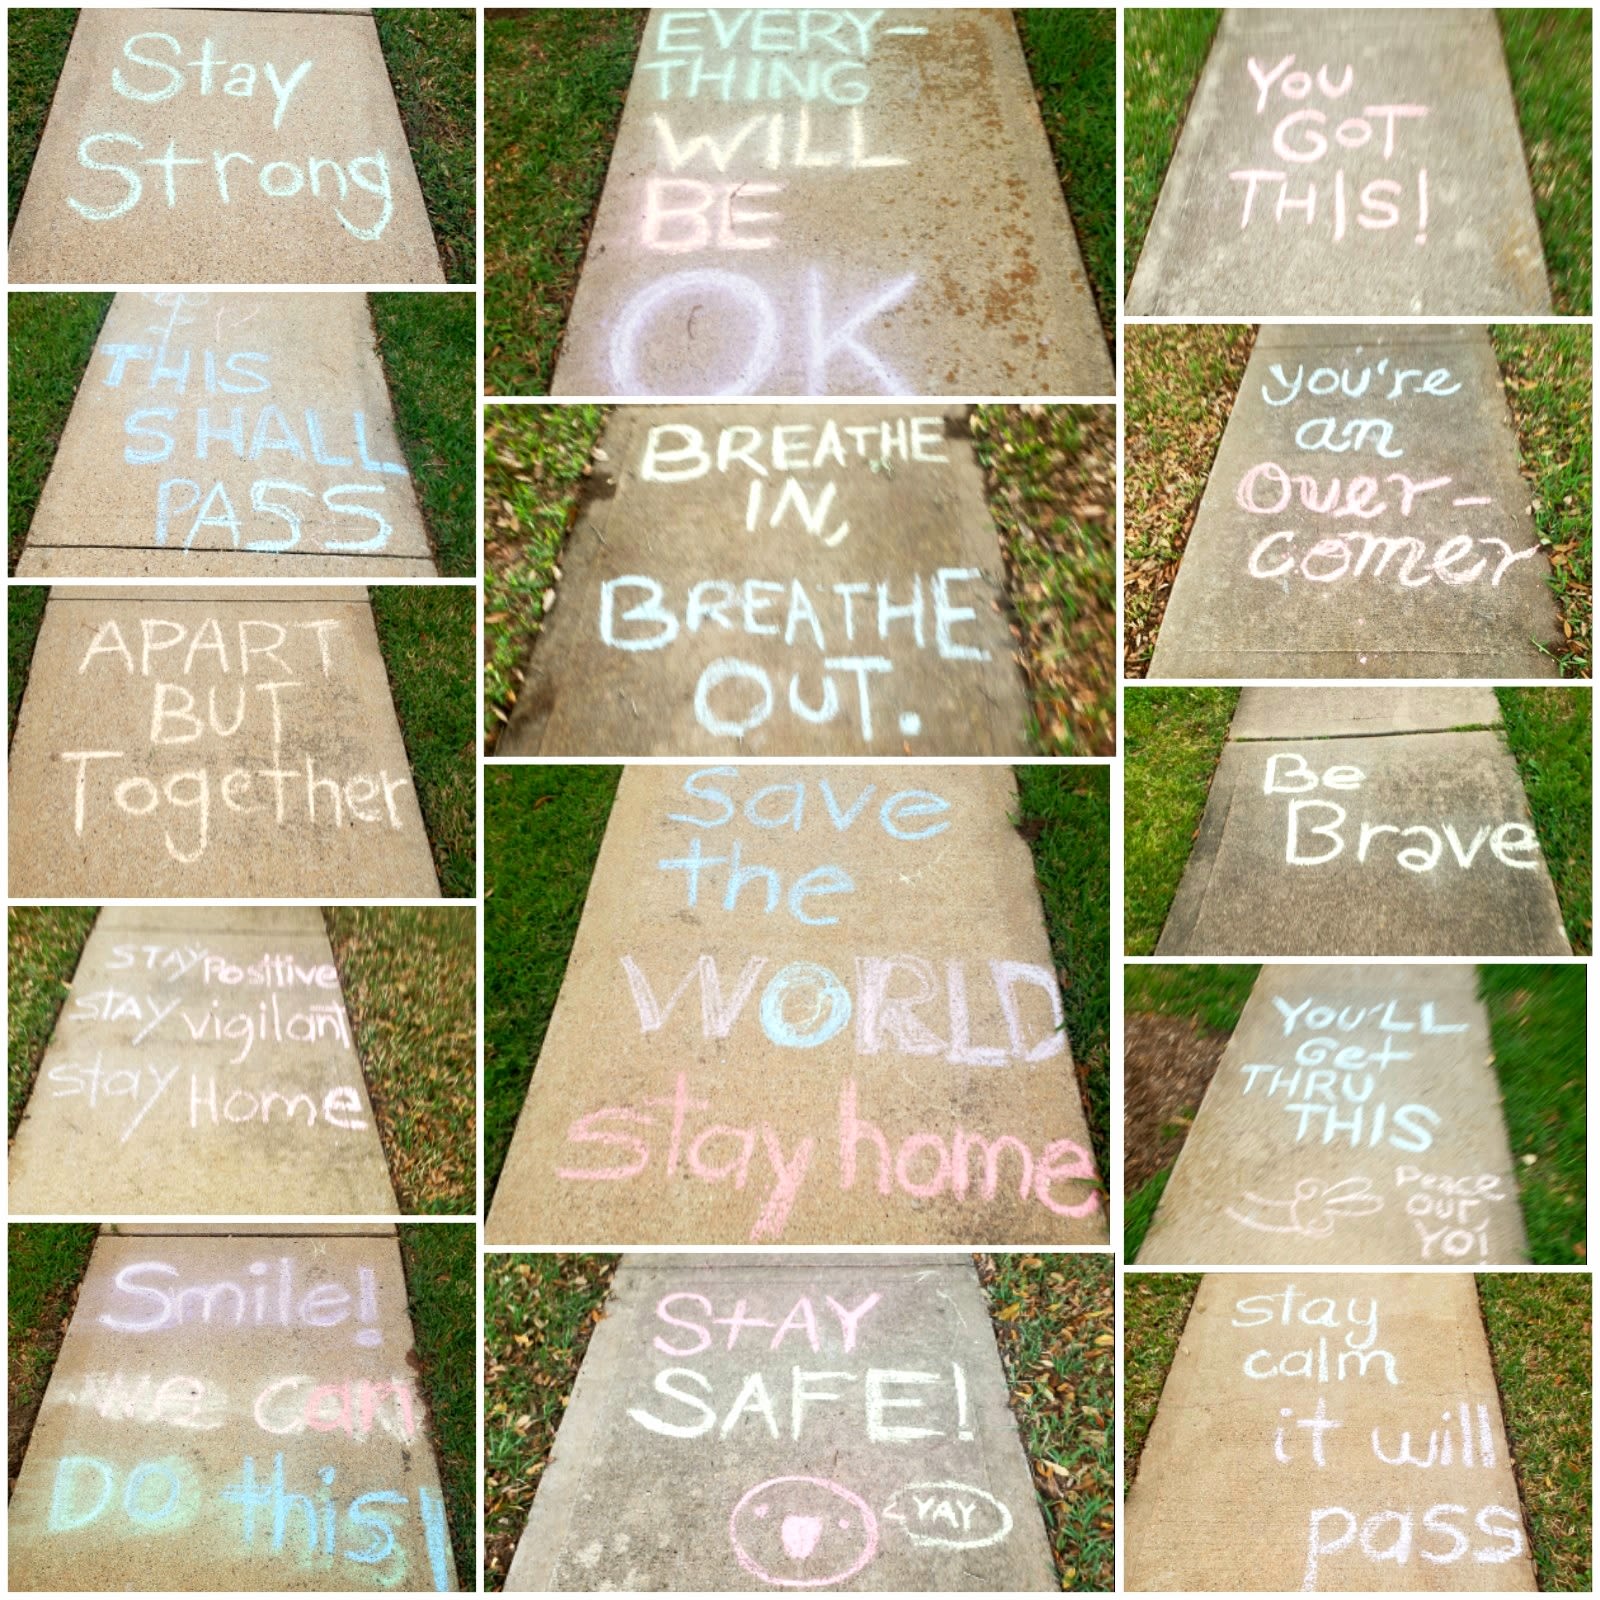 Stay
Strong
THIS
SHALL
PASS
APART
BUT
Together
STAY Positive
STAY vigilant
stay Home
Smile!
we can
DO this!
EVERY-
THING
WILL
BE
OK
BREATHE
IN,
BREATHE
OUT.
Save
the
WORLD
stay home
StAY
SAFE!
YAY
YOU
GOT
THIS!
you're
an
Over-
comer
Be
Brave
YOU'LL
Get
THRU
THIS
Peace
OUT
YO!
stay
calm
it will
pass